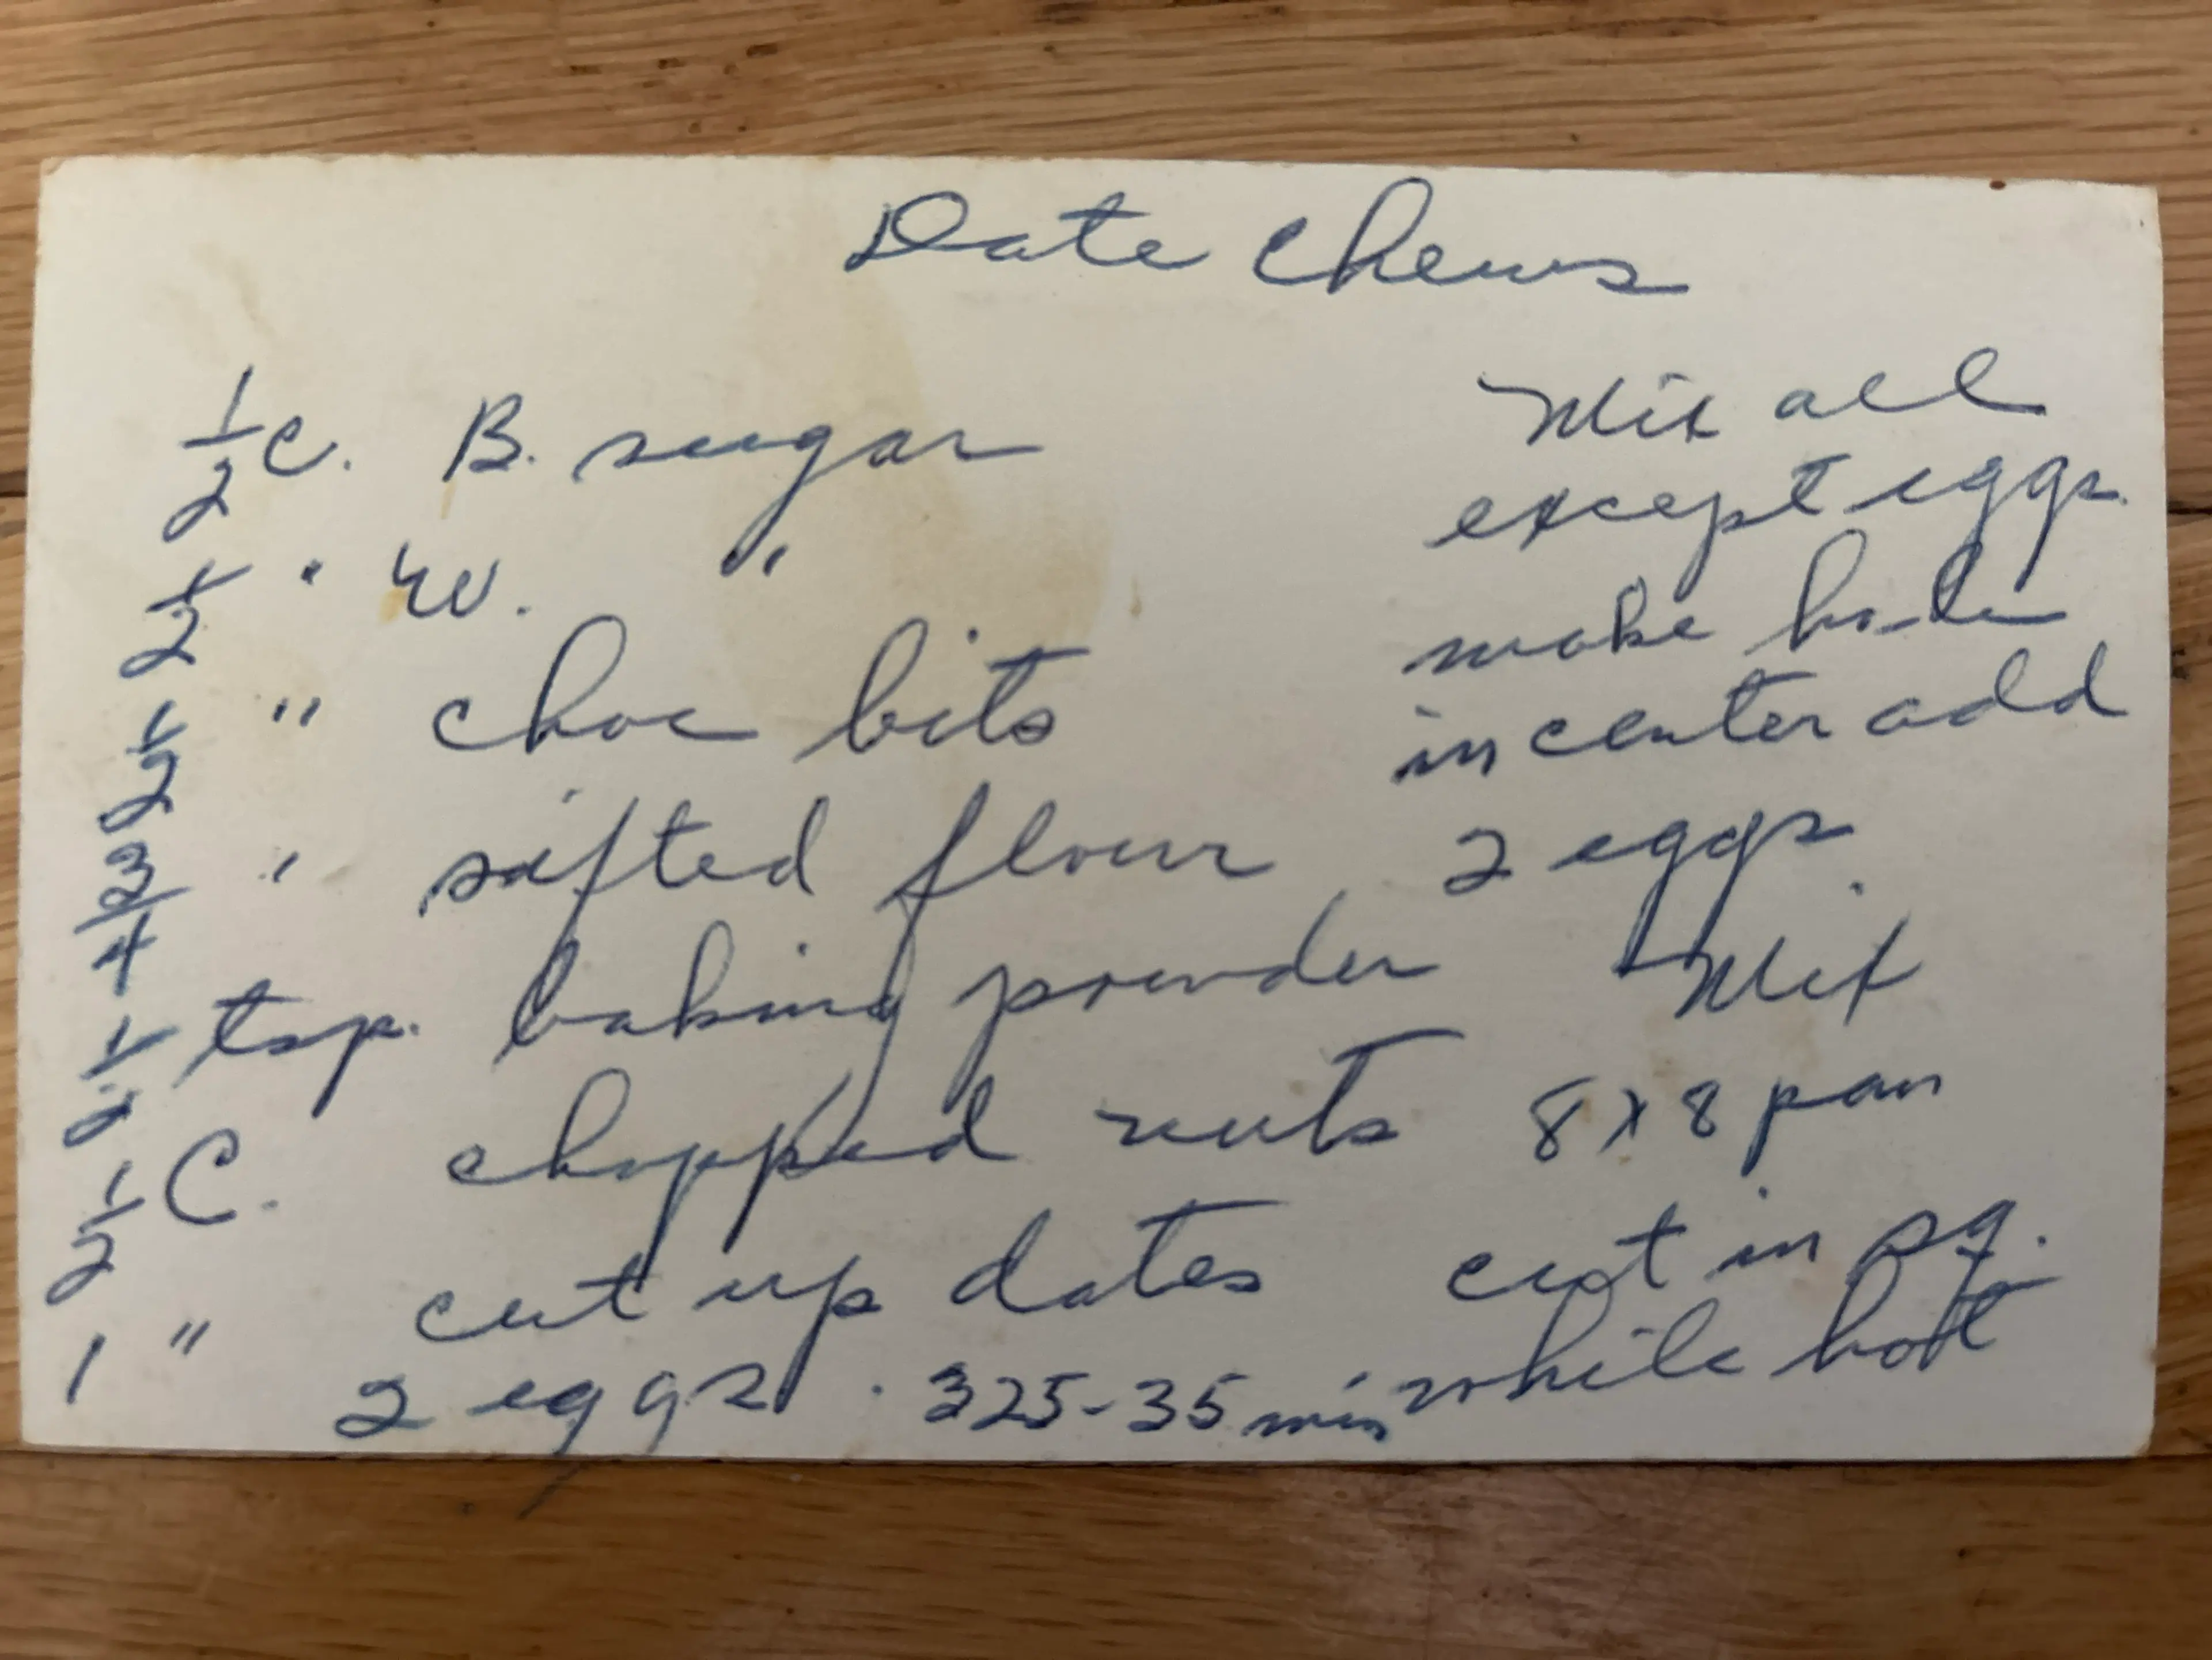 Date Chews
1/2 c. B. sugar
1/2 " W. "
1/2 " choc bits
3/4 " sifted flour
1/2 tsp. baking powder
1/2 C. chopped nuts
1 " cut up dates
2 eggs. 325-35 min
Mix all
except eggs.
make hole
in center add
2 eggs.
Mix
8 x 8 pan
cut in sq.
while hot